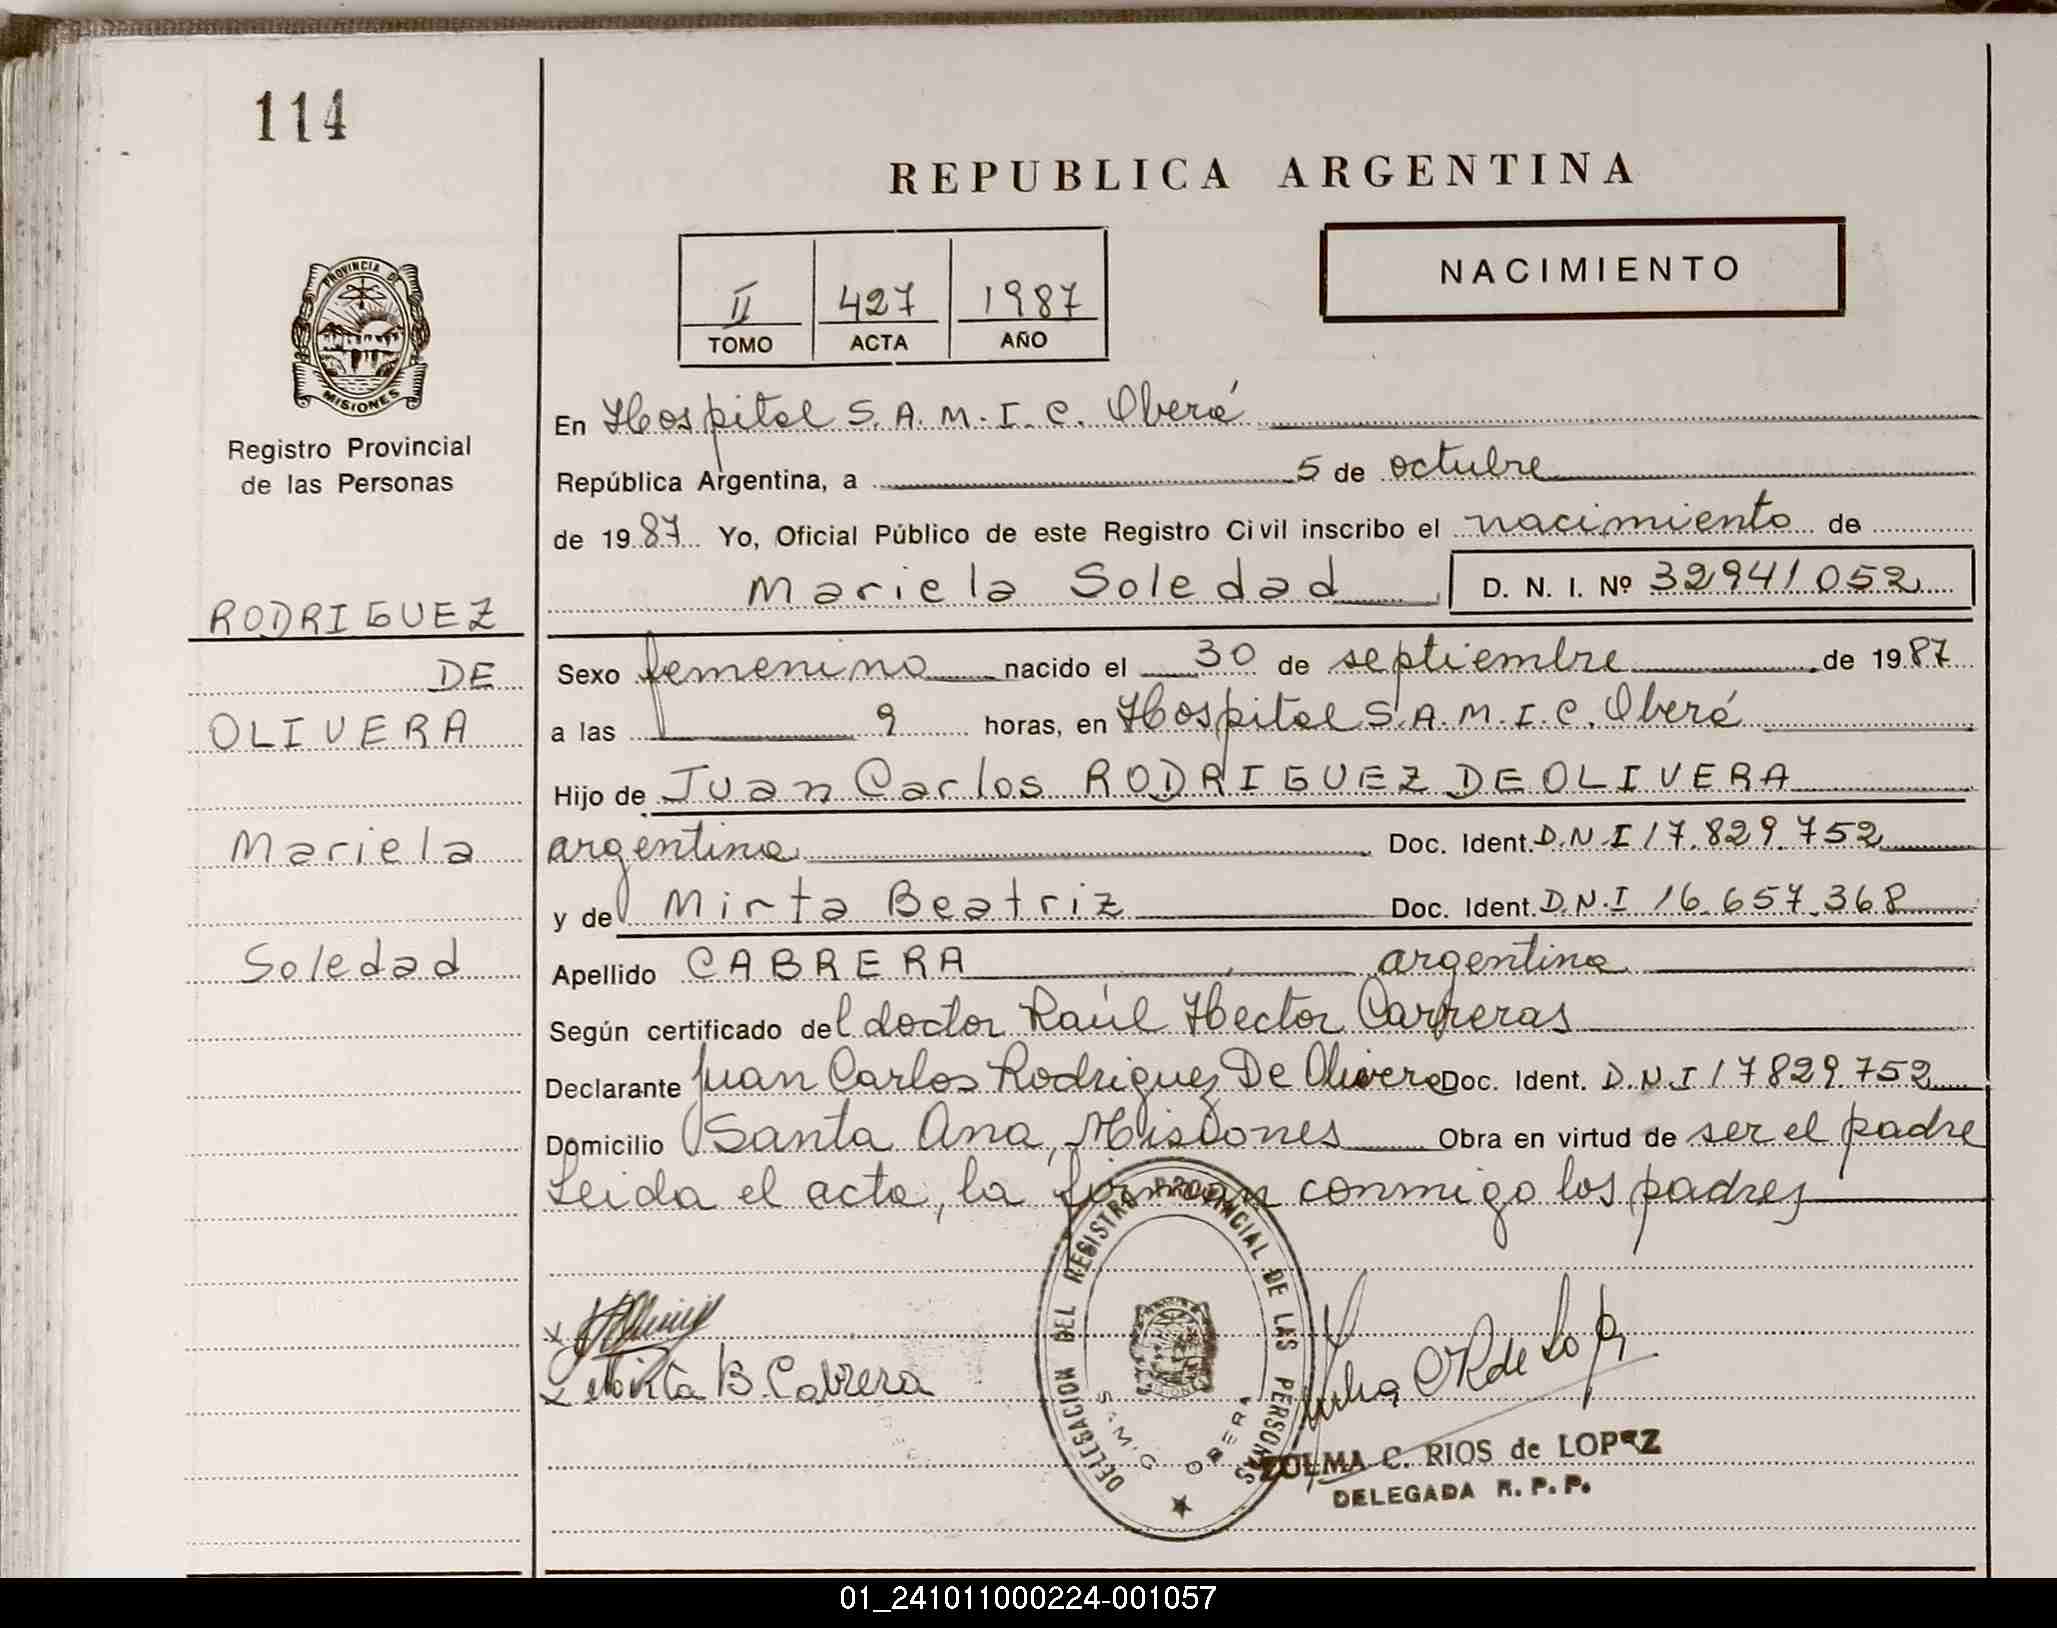 114
REPUBLICA ARGENTINA
II 427 1987
TOMO ACTA AÑO
NACIMIENTO
PROVINCIA DE
MISIONES
Registro Provincial
de las Personas
RODRIGUEZ
DE
OLIVERA
Mariela
Soledad
En Hospital S.A.M.I.C. Oberá
República Argentina, a 5 de octubre
de 1987 Yo, Oficial Público de este Registro Civil inscribo el nacimiento de
Mariela Soledad D. N. I. Nº 32941052
Sexo femenino nacido el 30 de septiembre de 1987
a las 9 horas, en Hospital S.A.M.I.C. Oberá
Hijo de Juan Carlos RODRIGUEZ DE OLIVERA
argentina Doc. Ident. D.N.I 17.829.752
y de Mirta Beatriz Doc. Ident. D.N.I 16.657.368
Apellido CABRERA argentina
Según certificado del doctor Raúl Hector Carreras
Declarante Juan Carlos Rodriguez De Olivera Doc. Ident. D.N.I 17829.752
Domicilio Santa Ana, Misiones Obra en virtud de ser el padre
Leida el acta, la firman conmigo los padres
DELEGACION DEL REGISTRO PROVINCIAL DE LAS PERSONAS
SAMIC OBERA
Mirta B. Cabrera
ZULMA C. RIOS de LOPEZ
DELEGADA R.P.P.
01_241011000224-001057